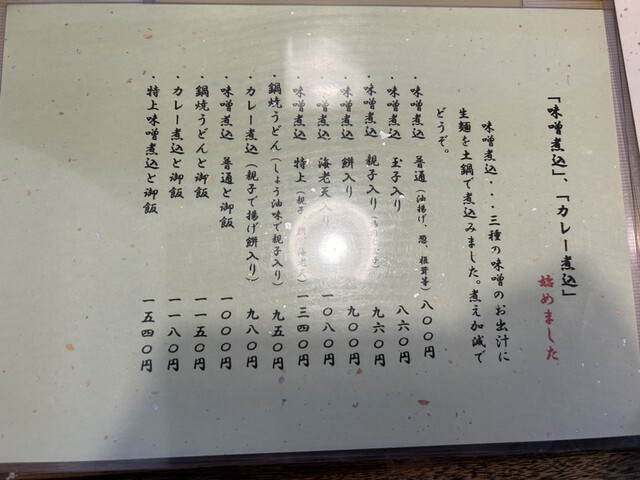 「味噌煮込」、「カレー煮込」
始めました
味噌煮込・・・三種の味噌のお出汁に
生麺を土鍋で煮込みました。煮え加減で
どうぞ。
・味噌煮込 普通(油揚げ、葱、椎茸等) 八〇〇円
・味噌煮込 玉子入り 八六〇円
・味噌煮込 親子入り 九六〇円
・味噌煮込 餅入り 九〇〇円
・味噌煮込 海老天 り 一〇八〇円
・味噌煮込 特上(親子 海老天) 一三四〇円
・鍋焼うどん(しょう油味で親子入り) 九五〇円
・カレー煮込(親子で揚げ餅入り) 九八〇円
・味噌煮込 普通と御飯 一〇〇〇円
・鍋焼うどんと御飯 一一五〇円
・カレー煮込と御飯 一一八〇円
・特上味噌煮込と御飯 一五四〇円